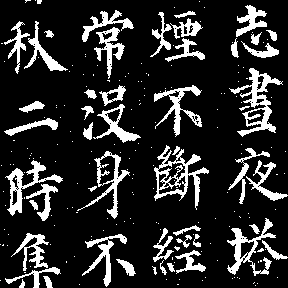 志晝夜塔
煙不斷經
常沒身不
秋二時集